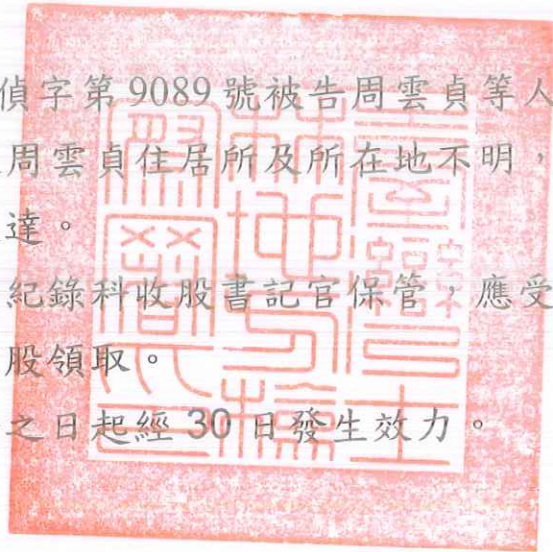 偵字第9089號被告周雲貞等人
周雲貞住居所及所在地不明，
達。
紀錄科收股書記官保管，應受
股領取。
之日起經30日發生效力。
臺灣士林地方檢察署印